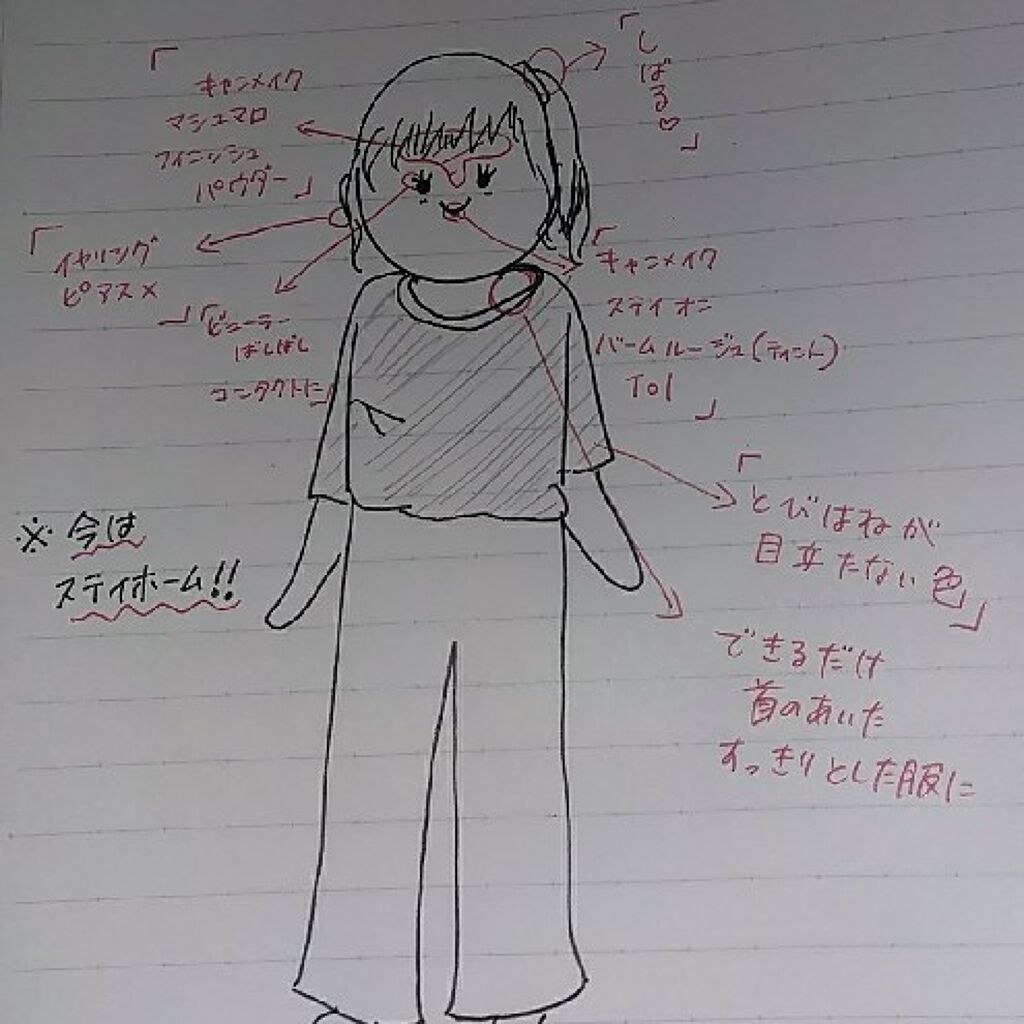 「しばる♡」
「キャンメイク
マシュマロ
フィニッシュ
パウダー」
「イヤリング
ピアス×」
「ビューラー
ばしばし
コンタクトに」
「キャンメイク
ステイオン
バームルージュ(ティント)
T01」
「とびはねが
目立たない色」
できるだけ
首のあいた
すっきりとした服に
※今は
ステイホーム!!